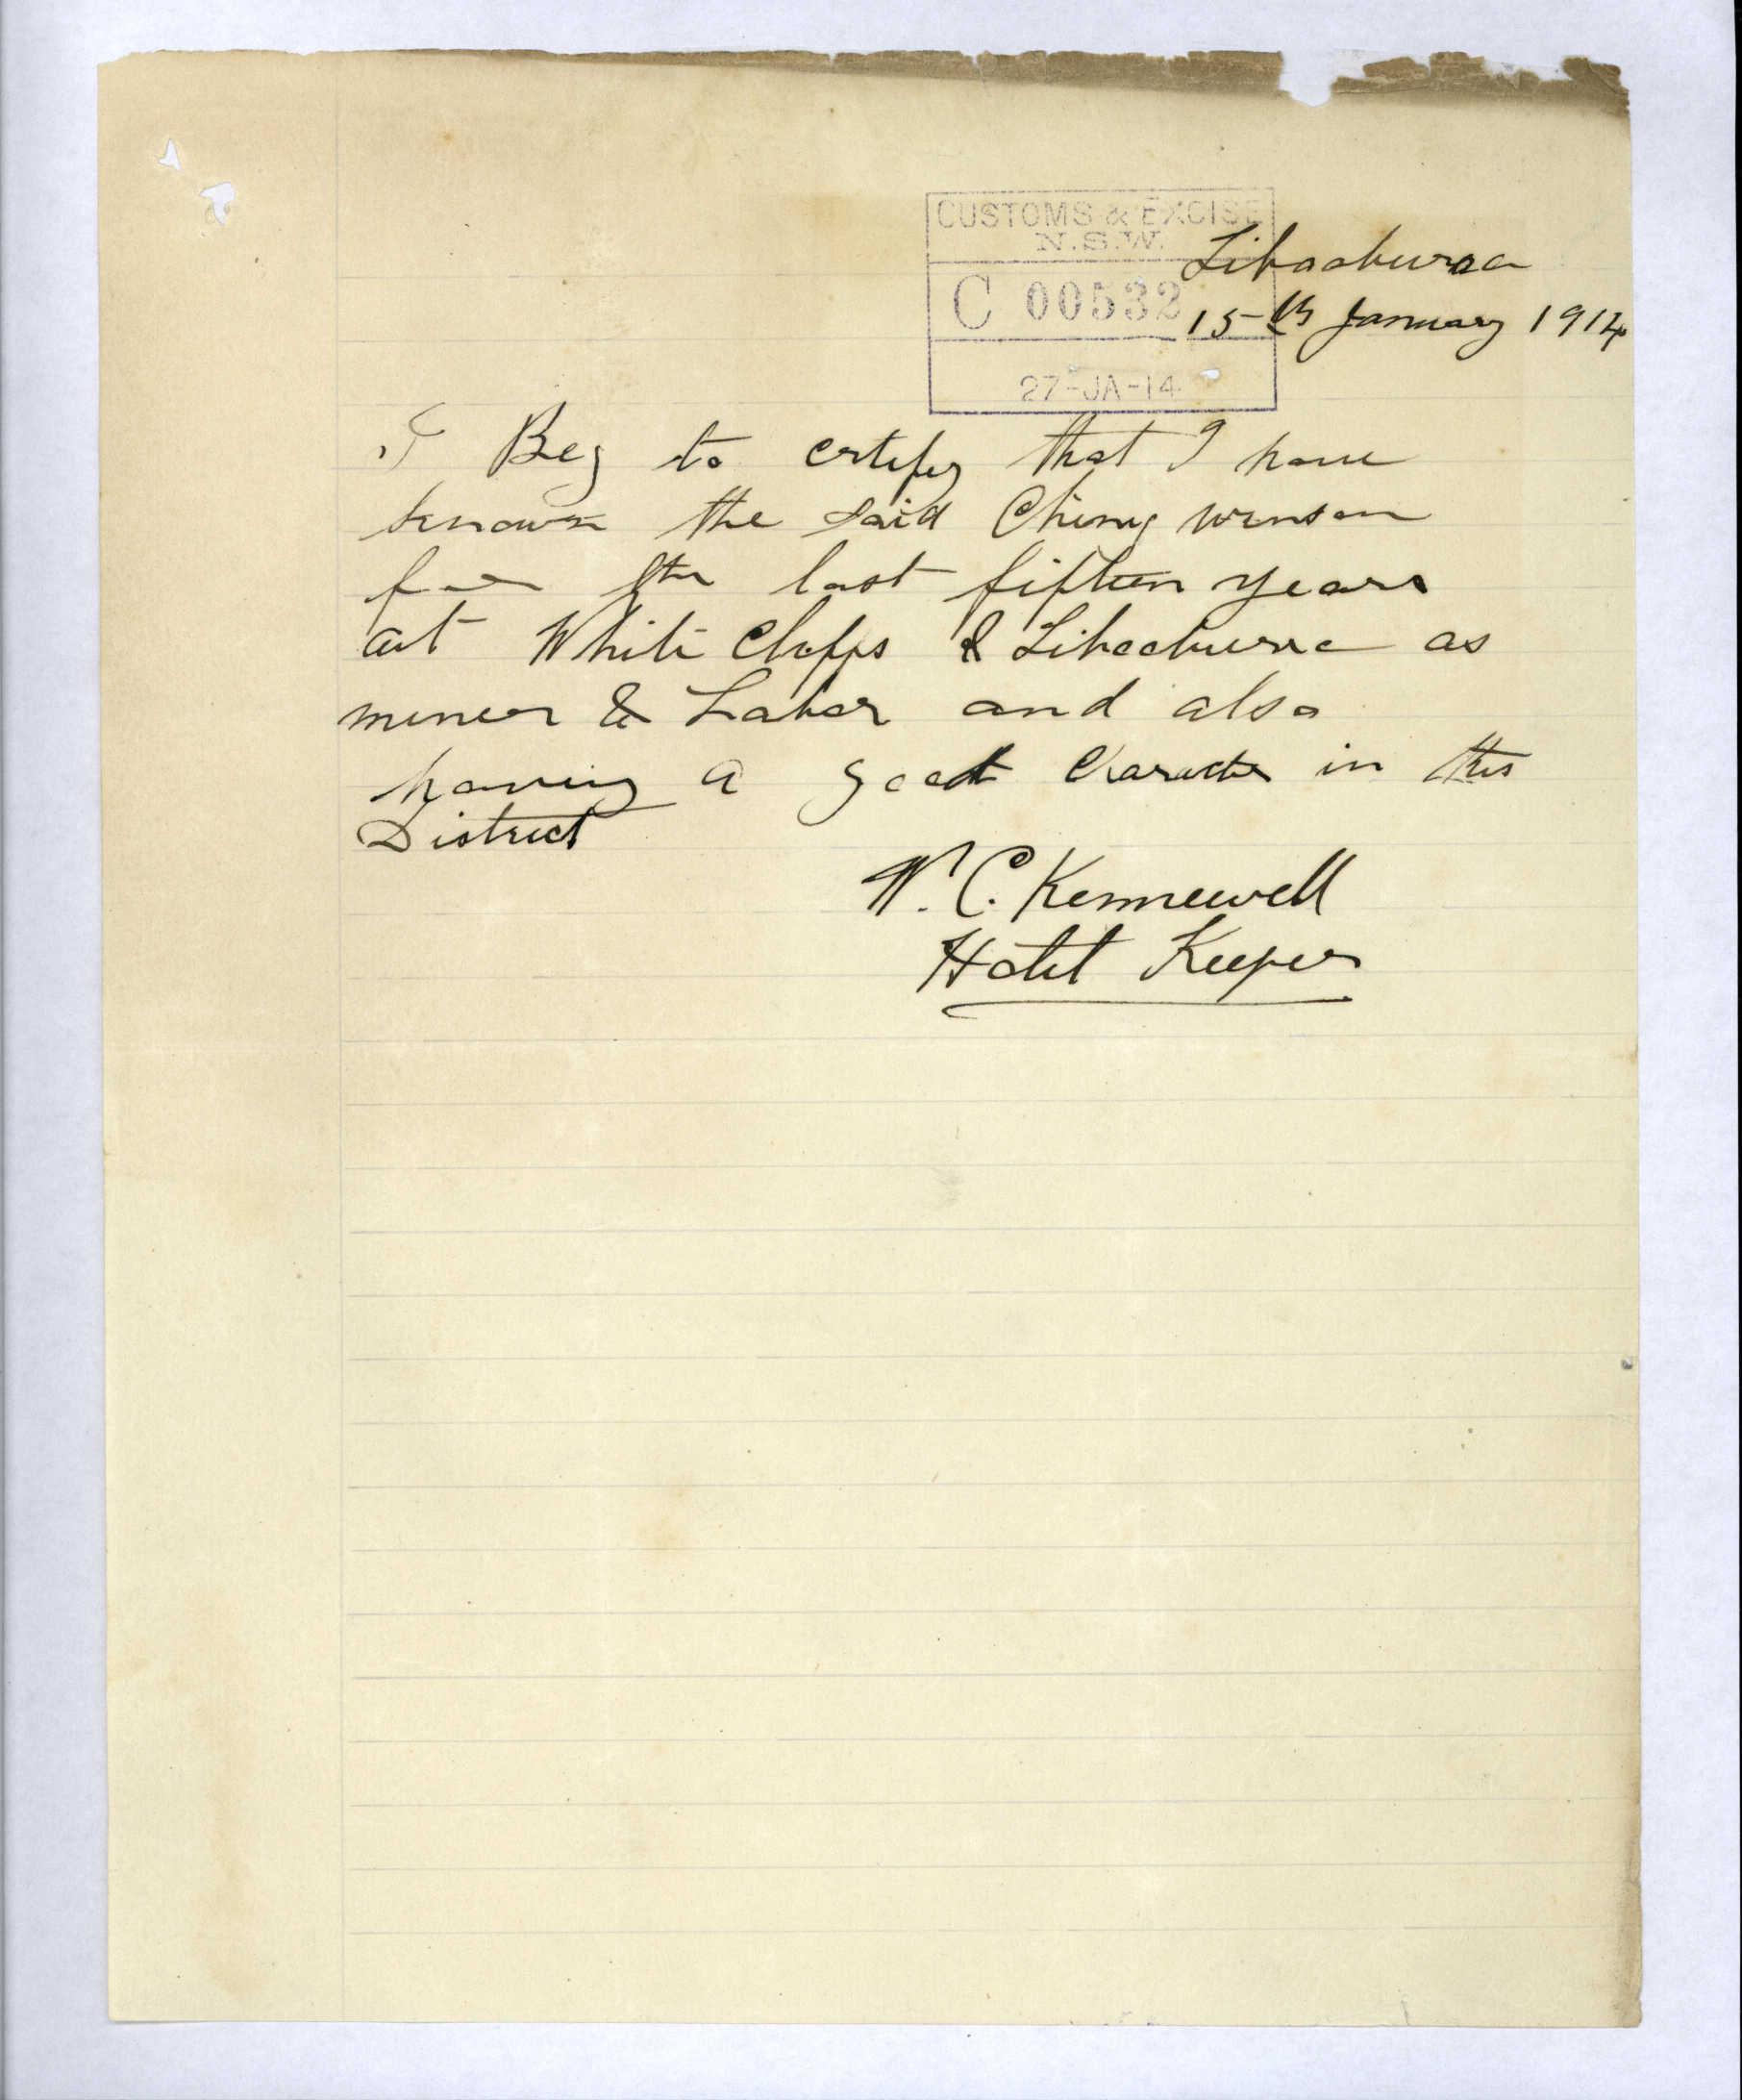 CUSTOMS & EXCISE
N.S.W.
C 00532
27-JA-14
Tibooburra
15th January 1914
I Beg to certify that I have
known the said Ching
for the last fifteen years
at White Cliffs & Tibooburra as
miner & Labor and also
having a good Character in this
District
W. C. Kennewell
Hotel Keeper